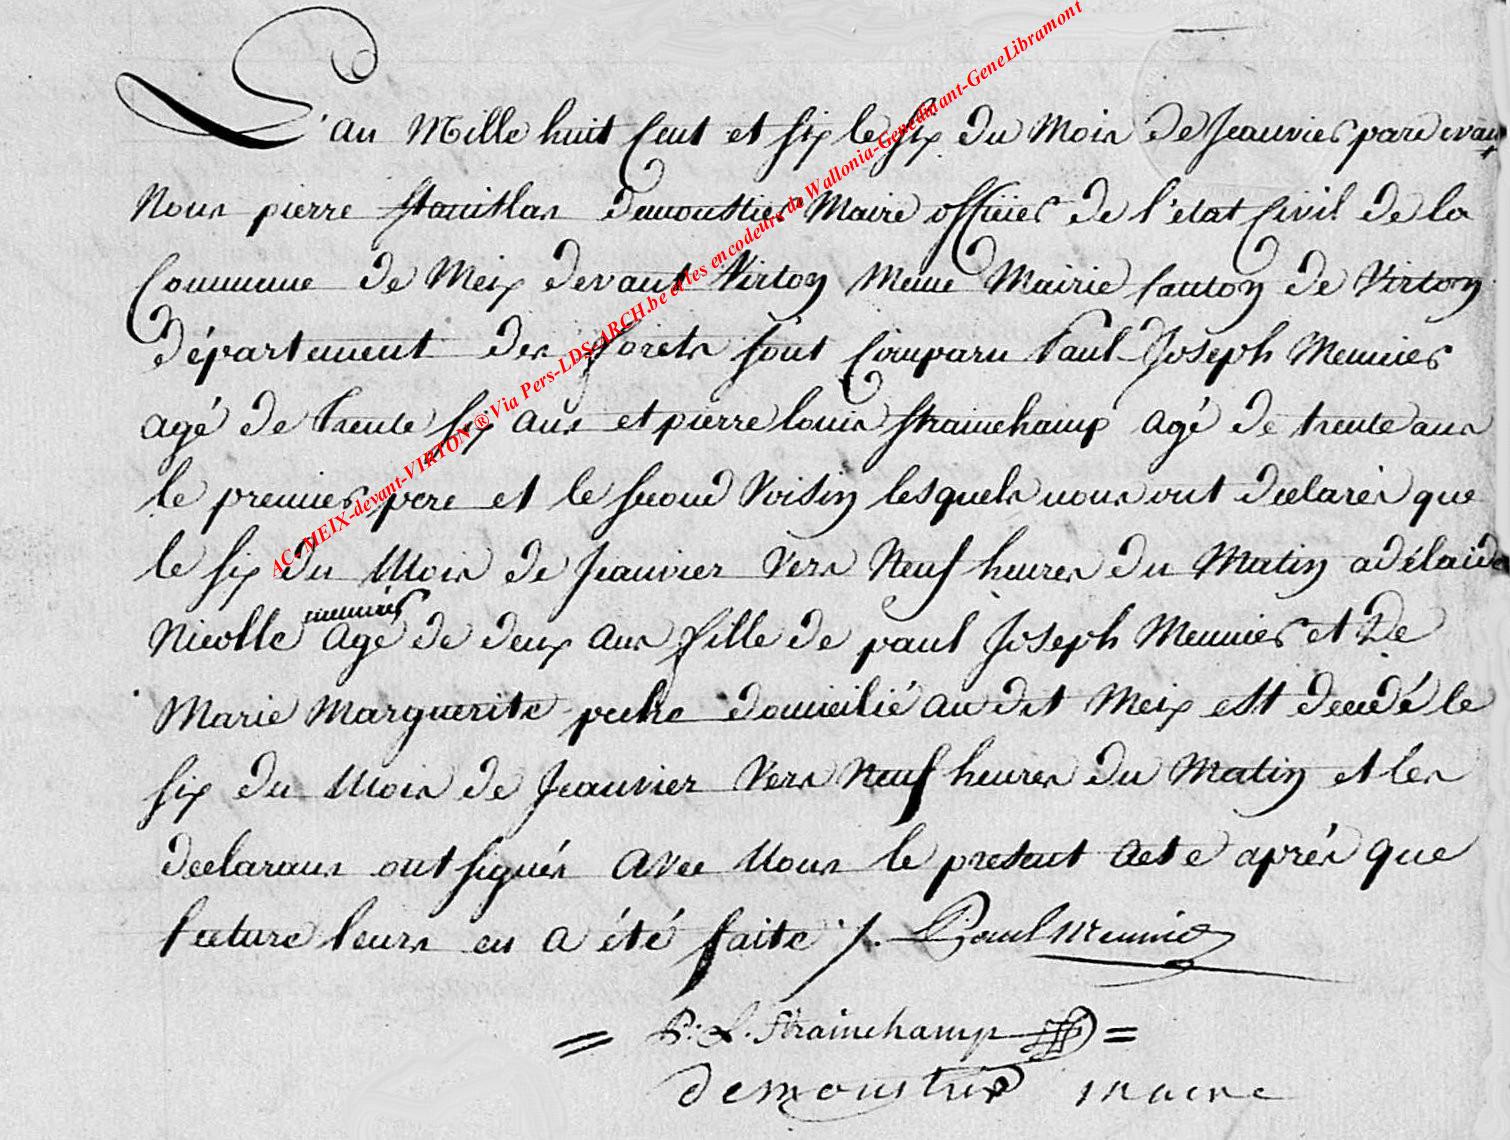 L'an Mille huit Cent et six le six du Mois de Jeauvier pardevant
Nous pierre Stanislas demoustier Maire officier de l'état Civil de la
Commune de Meix devant Virton Meme Mairie Canton de Virton
département des forets sont Comparu Paul Joseph Meunier
agé de trente six ans et pierre louis Strainchamp agé de trente ans
le premier pere et le second Voisin lesquels nous ont declarés que
le six du Mois de Jeauvier vers Neuf heures du Matin adélaide
Nicolle meunier agé de deux ans fille de paul Joseph Meunier et De
Marie Marguerite domicilié audit Meix est decedé le
six du Mois de Jeauvier Vers Neuf heures du Matin et les
declarans ont signés avec Nous le present acte aprés que
lecture leurs en a été faite ./. Paul Meunier
= P: L. Strainchamp =
demoustier maire
AC-MEIX-devant-VIRTON ® Via Pers-LDS-ARCH.be et les encodeurs de Wallonia-Genedinant-GeneLibramont